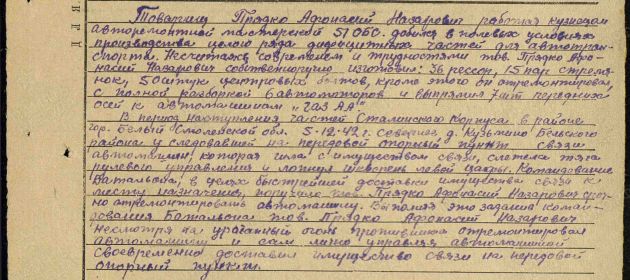 Товарищ Прядко Афонасий Назарович работая кузнецом
авторемонтной мастерской 51 ОБС. добился в полевых условиях
производства целого ряда дефицитных частей для автотран-
спорта. Несчитаясь современем и трудностями тов. Прядко Афо-
насий Назарович собственноручно изготовил: 36 рессор, 15 пар стремя-
нок, 50 штук центровых болтов, кроме этого он отремонтировал
с полной разборкой 6 автомоторов и выпрямил 7 шт передних
осей к автомашинам "ГАЗ АА"
В период наступления частей Сталинского Корпуса в районе
гор. Белый Смоленской обл. 5-12-42 г. севернее д. Кузьмино Бельского
района у следовавшей на передовой опорный пункт связи
автомашины, которая шла с имуществом связи, слетела тяга
рулевого управления и лопнул шкворень левой цапфы. Командование
Батальона, в целях быстрейшей доставки имущества связи к
месту назначения, поручило тов. Прядко Афонасий Назарович сроч-
но отремонтировать автомашину. Выполняя это задание коман-
дования Батальона тов. Прядко Афонасий Назарович
несмотря на ураганный огонь противника отремонтировал
автомашину и сам лично управляя автомашиной
своевременно доставил имущество связи на передовой
опорный пункт.